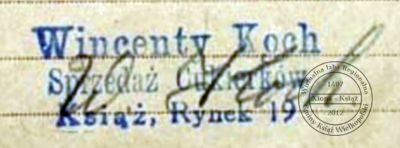 Wincenty Koch
Sprzedaż Cukierków
Książ, Rynek 19
W. Koch
Wirtualna Izba Regionalna
1407
Xions - Książ
2012
Gminy Książ Wielkopolski